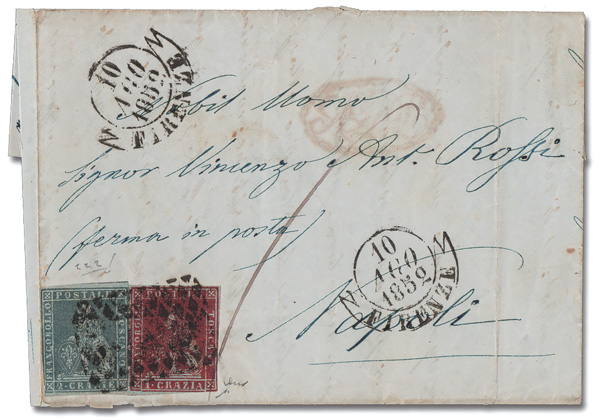 10
AGO
1852
FIRENZE
Nobil Uomo
Signor Vincenzo Ant. Rossi
(ferma in posta)
Napoli
10
AGO
1852
FIRENZE
FRANCOBOLLO
POSTALE
TOSCANO
2·CRAZIE
POSTALE
TOSCANO
1·CRAZIA